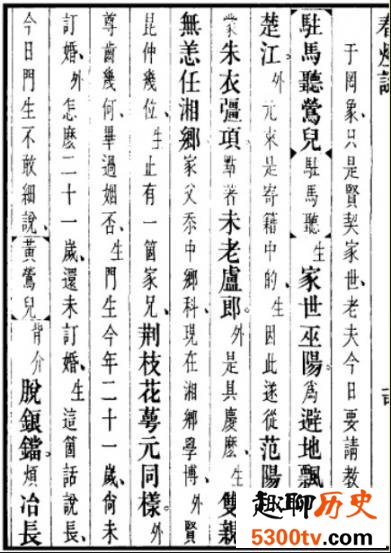 春燈謎
于罔象、只是賢契家世、老夫今日要請教
【駐馬聽鶯兒】駐馬聽生家世巫陽。爲避地飄
楚江。外元來是寄籍中的、生因此遂從范陽
蒙朱衣彊項點著未老盧郎。外是具慶麽、生雙親
無恙任湘鄉家父忝中鄉科現在湘鄉學博、外賢
昆仲幾位、生止有一箇家兄、荆枝花萼元同樣。外
尊齒幾何、畢過姻否、生門生今年二十一歲、尙未
訂婚、外怎麽二十一歲、還未訂婚、生這箇話說長、
今日門生不敢細說、【黃鶯兒】背介脫鋃鐺。煩冶長
趣聊历史
5300tv.com